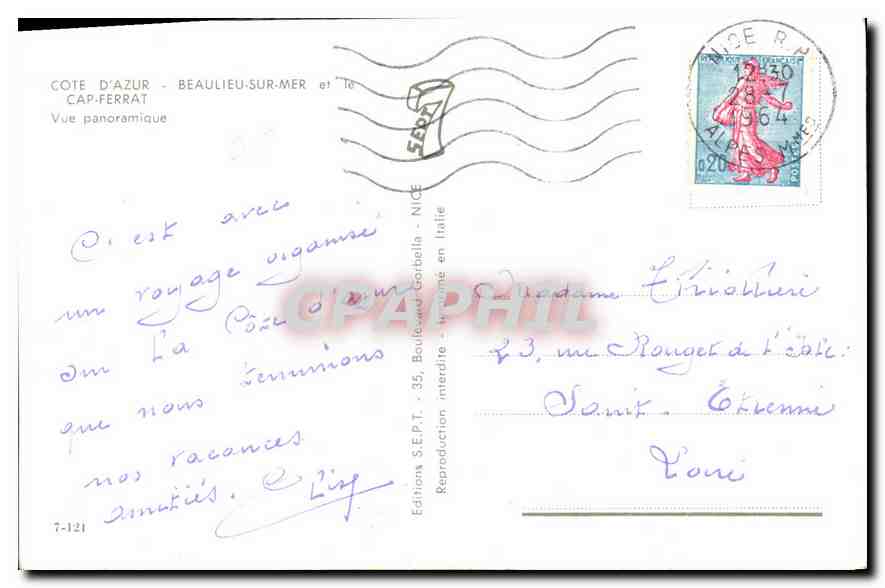 COTE D'AZUR - BEAULIEU-SUR-MER et le
CAP-FERRAT
Vue panoramique
C'est avec
un voyage organisé
sur la Côte d'azur
que nous terminons
nos vacances
amitiés.
7-121
Editions S.E.P.T. - 35, Boulevard Gorbella - NICE
Reproduction interdite - Imprimé en Italie
SEPT
CPAPHIL
NICE R.P
12H30
28-7
1964
ALPES MMES
REPUBLIQUE FRANÇAISE
0,20
POSTES
Madame
23, rue Rouget de l'Isle.
Saint-Etienne
Loire